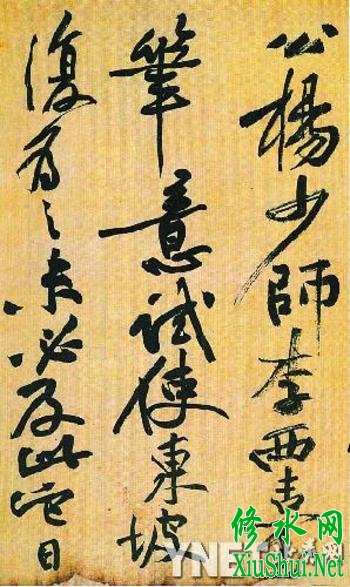 公楊少師李西臺
筆意試使東坡
復為之未必及此它日
修水网
XiuShui.Net
YNE